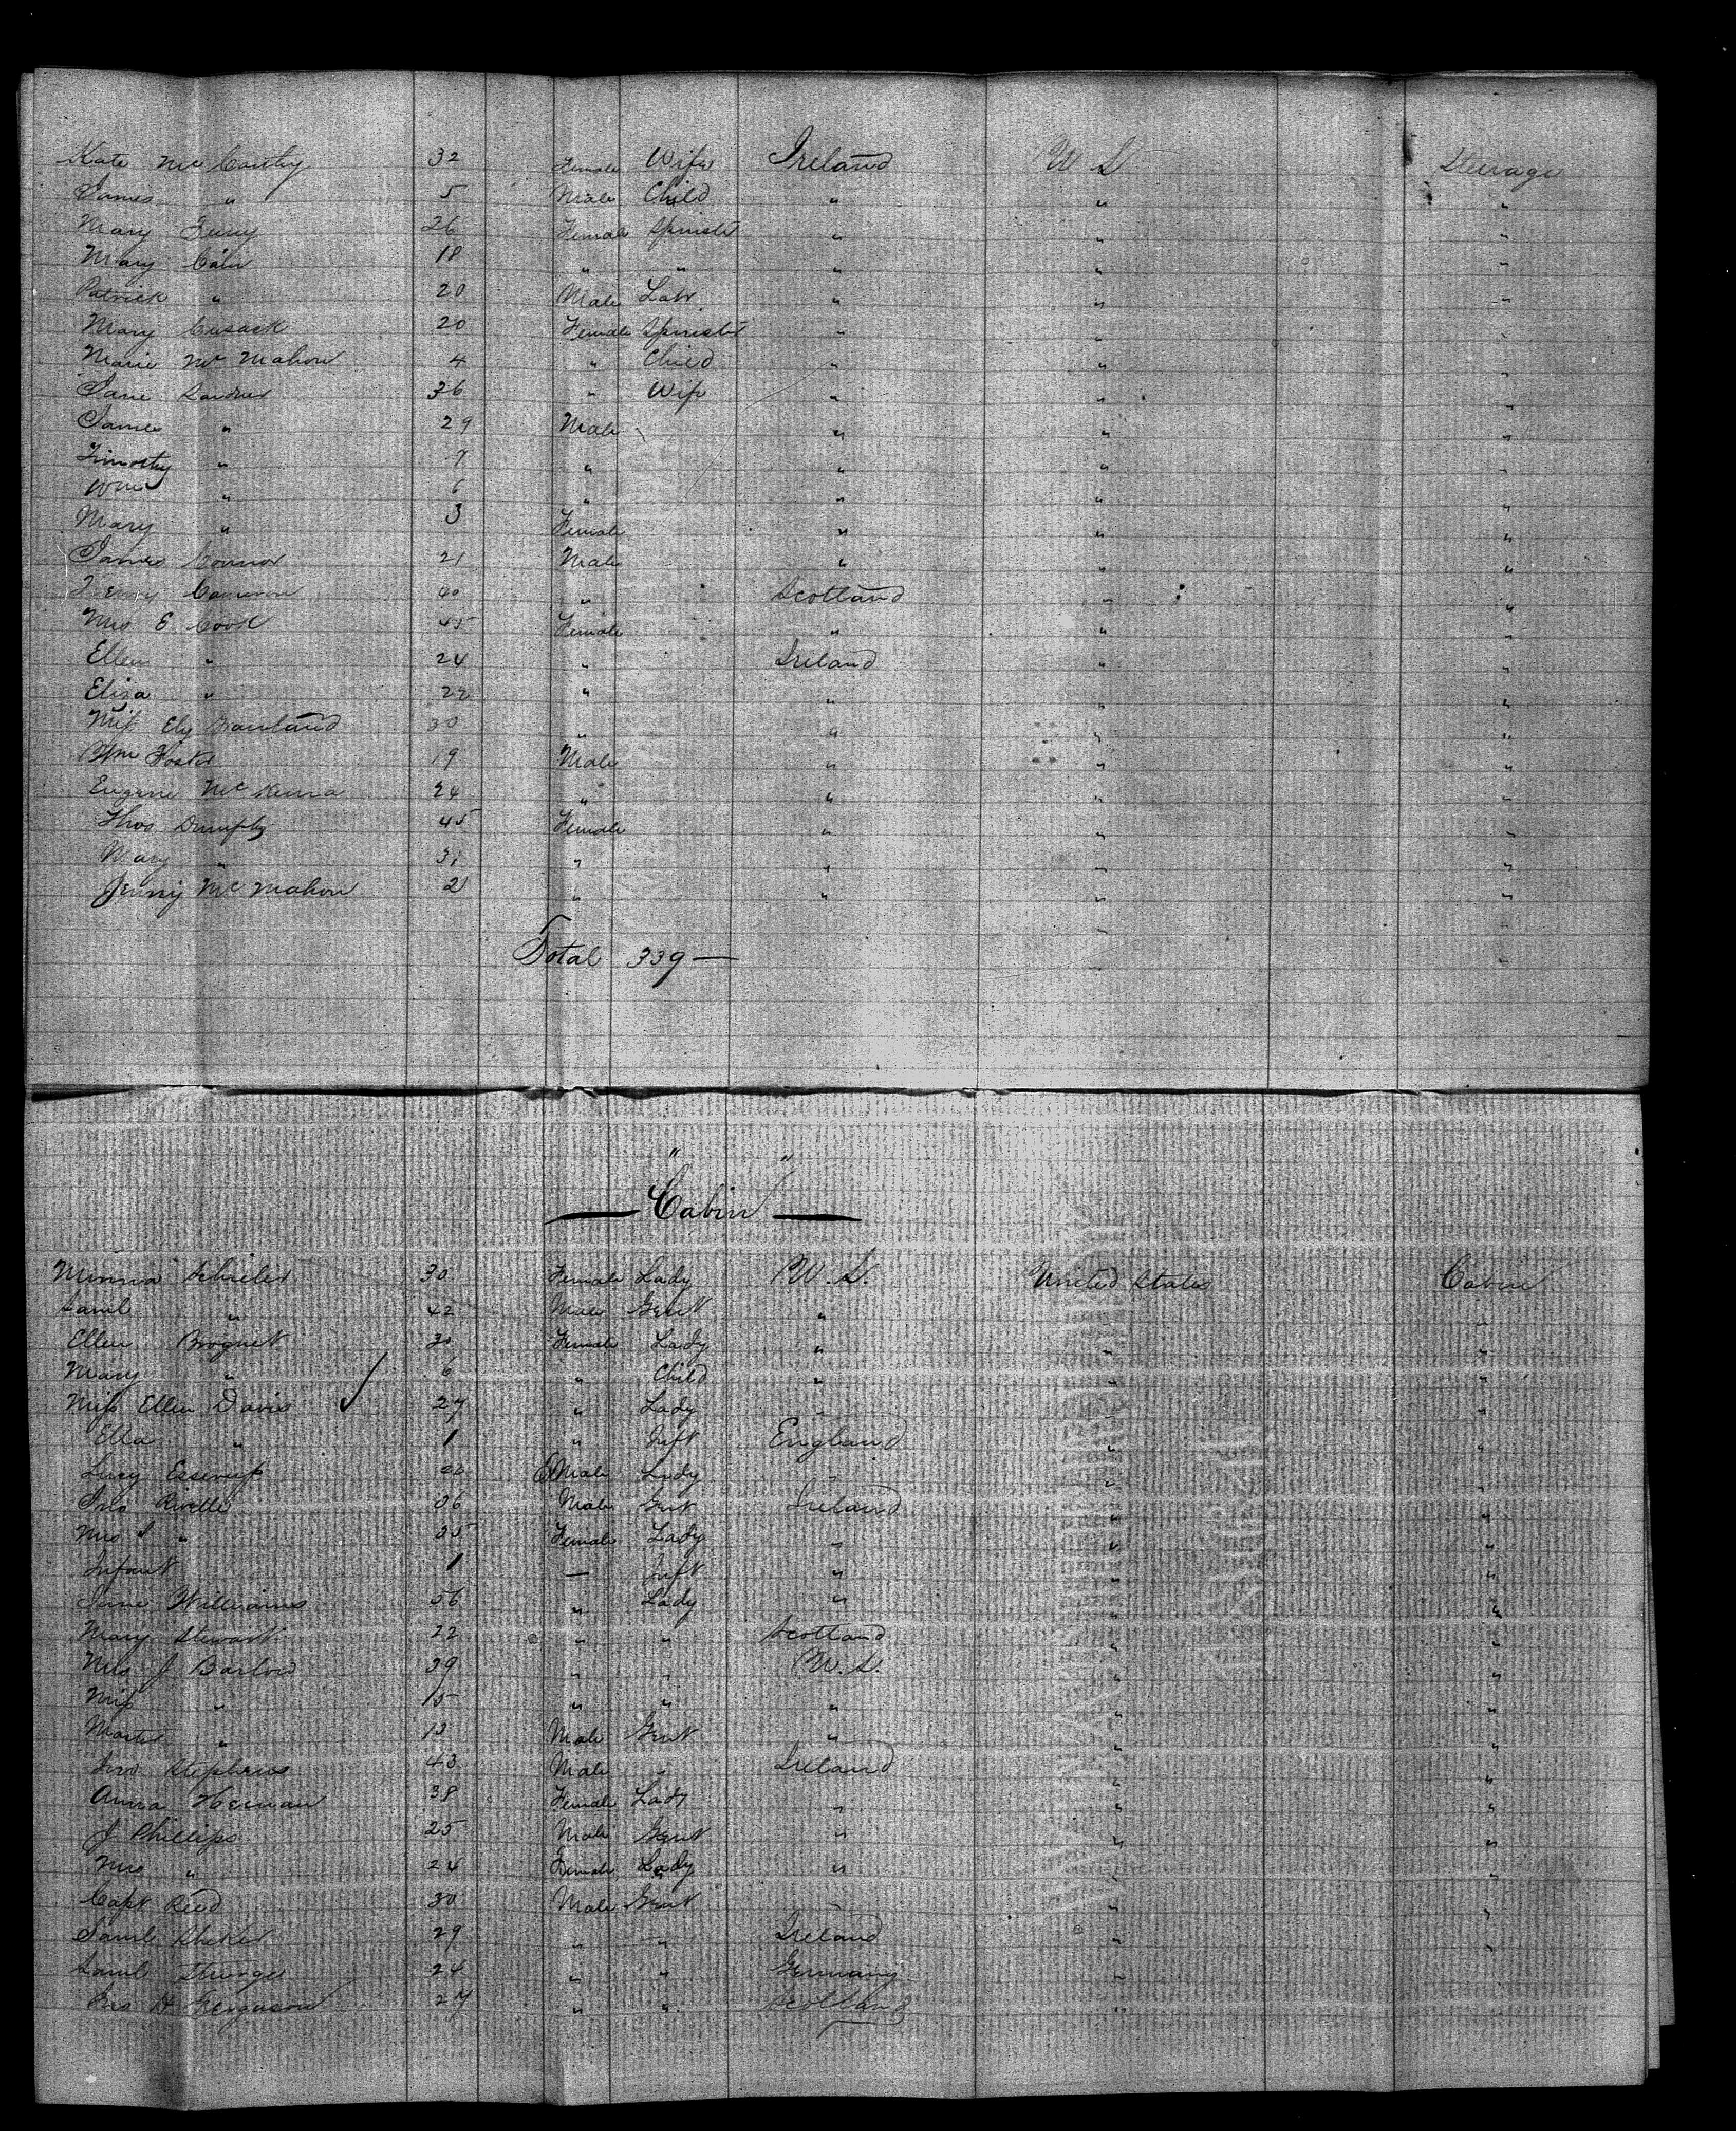 Kate Mc Carthy 32 Female Wife Ireland U S Steerage
James " 5 Male Child " " "
Mary 26 Female Spinster " " "
Mary Cain 18 " " " " "
Patrick " 20 Male Lab " " "
Mary Cusack 20 Female Spinster " " "
Marie Mc Mahon 4 " Child " " "
Jane 36 " Wife " " "
James " 29 Male " " "
Timothy " 7 " " " "
Wm " 6 " " " "
Mary " 3 Female " " "
James Connor 21 Male " " "
Henry Cameron 40 " Scotland " "
Mrs E Cook 45 Female " " "
Ellen " 24 " Ireland " "
Eliza " 22 " " " "
Miss Ely 30 " " " "
Wm Foster 19 Male " " "
Eugene Mc Kenna 24 " " " "
Thos Dumphy 45 Female " " "
Mary " 31 " " " "
Jenny Mc Mahon 21 " " " "
Total 339 —
" "
— Cabin —
Minna 30 Female Lady U. S. United States Cabin
Saml " 42 Male Gent " " "
Ellen Brognet 30 Female Lady " " "
Mary " 6 " Child " " "
Miss Ellen Davis 27 " Lady " " "
Ella " 1 " Inft England " "
Lucy Male Lady " " "
Jno Rivelle 36 Male Gent Ireland " "
Mrs J " 35 Female Lady " " "
Infant 1 — Inft " " "
Jane Williams 56 " Lady " " "
Mary Stewart 22 " " Scotland " "
Mrs J Barlow 39 " " U. S. " "
Miss " 15 " " " " "
Master " 13 Male Gent " " "
Jno Stephens 43 Male " Ireland " "
Anna Heenan 38 Female Lady " " "
J Phillips 25 Male Gent " " "
Mrs " 24 Female Lady " " "
Capt Reed 30 Male Gent " " "
Saml 29 " " Ireland " "
Saml Sturges 24 " " Germany "
H Ferguson 27 " " Scotland "